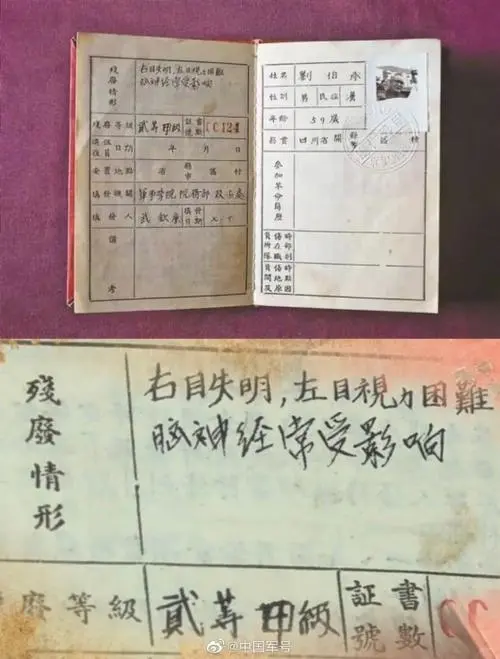 殘廢情形
右目失明,左目視力困難
脳神經常受影响
殘廢等級 貳等甲級 証書號數 CC124
日期 年 月 日
安置地點 省縣市 區 村
填發機關 軍事學院院務部政治處
填發人 武 填發日期
備考
姓名 劉伯承
性別 男 民族 漢
年齡 59歲
籍貫 四川省開縣市 區 村
參加革命簡歷
殘廢情形
右目失明,左目視力困難
脳神經常受影响
廢等級 貳等甲級 証書號數 CC
@中国军号